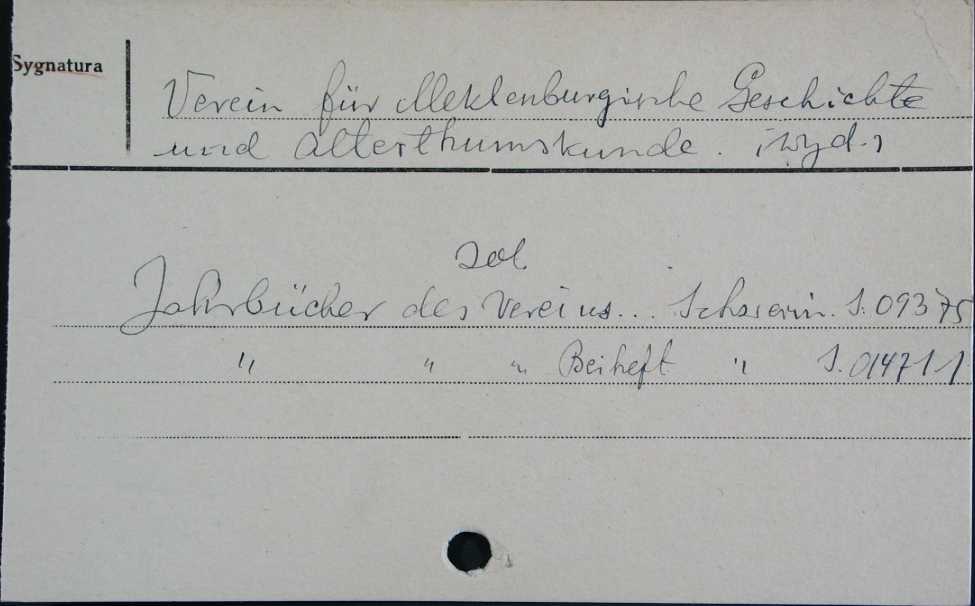 Sygnatura
Verein für Meklenburgische Geschichte
und Alterthumskunde. (wyd.)
Jahrbücher des Vereins... Schwerin. S. 09375
" " " Beiheft " S. 014711